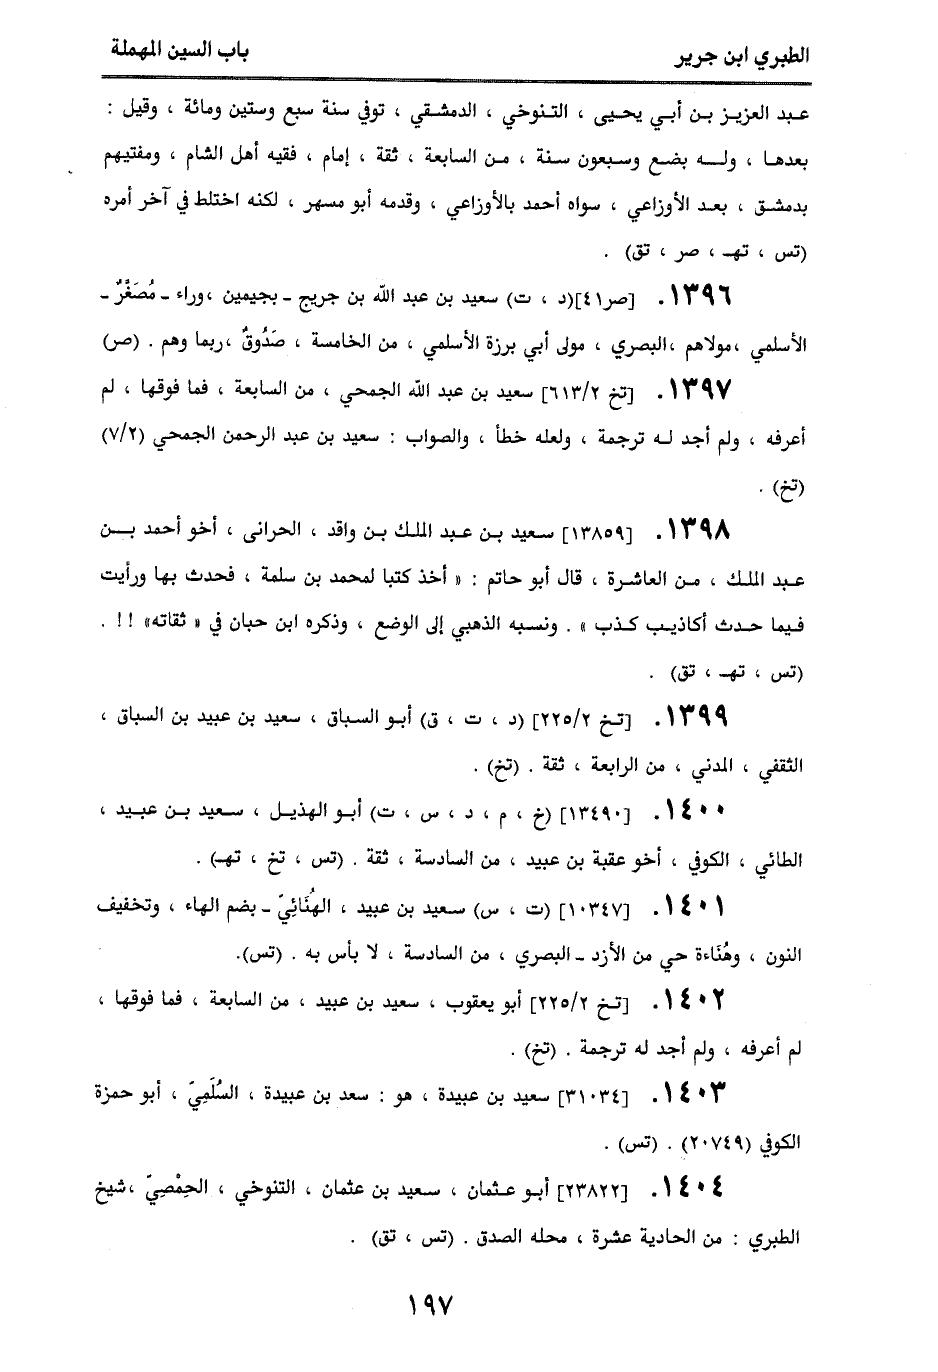 الطبري ابن جرير
باب السين المهملة
عبد العزيز بن أبي يحيى ، التنوخي ، الدمشقي ، توفي سنة سبع وستين ومائة ، وقيل :
بعدها ، وله بضع وسبعون سنة ، من السابعة ، ثقة ، إمام ، فقيه أهل الشام ، ومفتيهم
بدمشق ، بعد الأوزاعي ، سواه أحمد بالأوزاعي ، وقدمه أبو مسهر ، لكنه اختلط في آخر أمره
(تس ، تهـ ، صر ، تق) .
١٣٩٦. [صر٤١](د ، ت) سعيد بن عبد الله بن جريج ـ بجيمين ،وراء ـ مُصَغَّرٌ ـ
الأسلمي ،مولاهم ،البصري ، مولى أبي برزة الأسلمي ، من الخامسة ، صَدُوقٌ ،ربما وهم . (صر)
١٣٩٧. [تخ ٦١٣/٢] سعيد بن عبد الله الجمحي ، من السابعة ، فما فوقها ، لم
أعرفه ، ولم أجد له ترجمة ، ولعله خطأ ، والصواب : سعيد بن عبد الرحمن الجمحي (٧/٢)
(تخ) .
١٣٩٨. [١٣٨٥٩] سعيد بن عبد الملك بن واقد ، الحرانى ، أخو أحمد بن
عبد الملك ، من العاشرة ، قال أبو حاتم : « أخذ كتبا لمحمد بن سلمة ، فحدث بها ورأيت
فيما حدث أكاذيب كذب » . ونسبه الذهبي إلى الوضع ، وذكره ابن حبان في « ثقاته» !! .
(تس ، تهـ ، تق) .
١٣٩٩. [تخ ٢٢٥/٢] (د ، ت ، ق) أبو السباق ، سعيد بن عبيد بن السباق ،
الثقفي ، المدني ، من الرابعة ، ثقة . (تخ) .
١٤٠٠. [١٣٤٩٠] (خ ، م ، د ، س ، ت) أبو الهذيل ، سعيد بن عبيد ،
الطائي ، الكوفي ، أخو عقبة بن عبيد ، من السادسة ، ثقة . (تس ، تخ ، تهـ) .
١٤٠١. [١٠٣٤٧] (ت ، س) سعيد بن عبيد ، الهُنَائِيّ ـ بضم الهاء ، وتخفيف
النون ، وهُنَاءة حي من الأزد ـ البصري ، من السادسة ، لا بأس به . (تس).
١٤٠٢. [تخ ٢٢٥/٢] أبو يعقوب ، سعيد بن عبيد ، من السابعة ، فما فوقها ،
لم أعرفه ، ولم أجد له ترجمة . (تخ) .
١٤٠٣. [٣١٠٣٤] سعيد بن عبيدة ، هو : سعد بن عبيدة ، السُلَمِيّ ، أبو حمزة
الكوفي (٢٠٧٤٩) . (تس) .
١٤٠٤. [٢٣٨٢٢] أبو عثمان ، سعيد بن عثمان ، التنوخي ، الحِمْصِيّ ،شيخ
الطبري : من الحادية عشرة ، محله الصدق . (تس ، تق) .
١٩٧